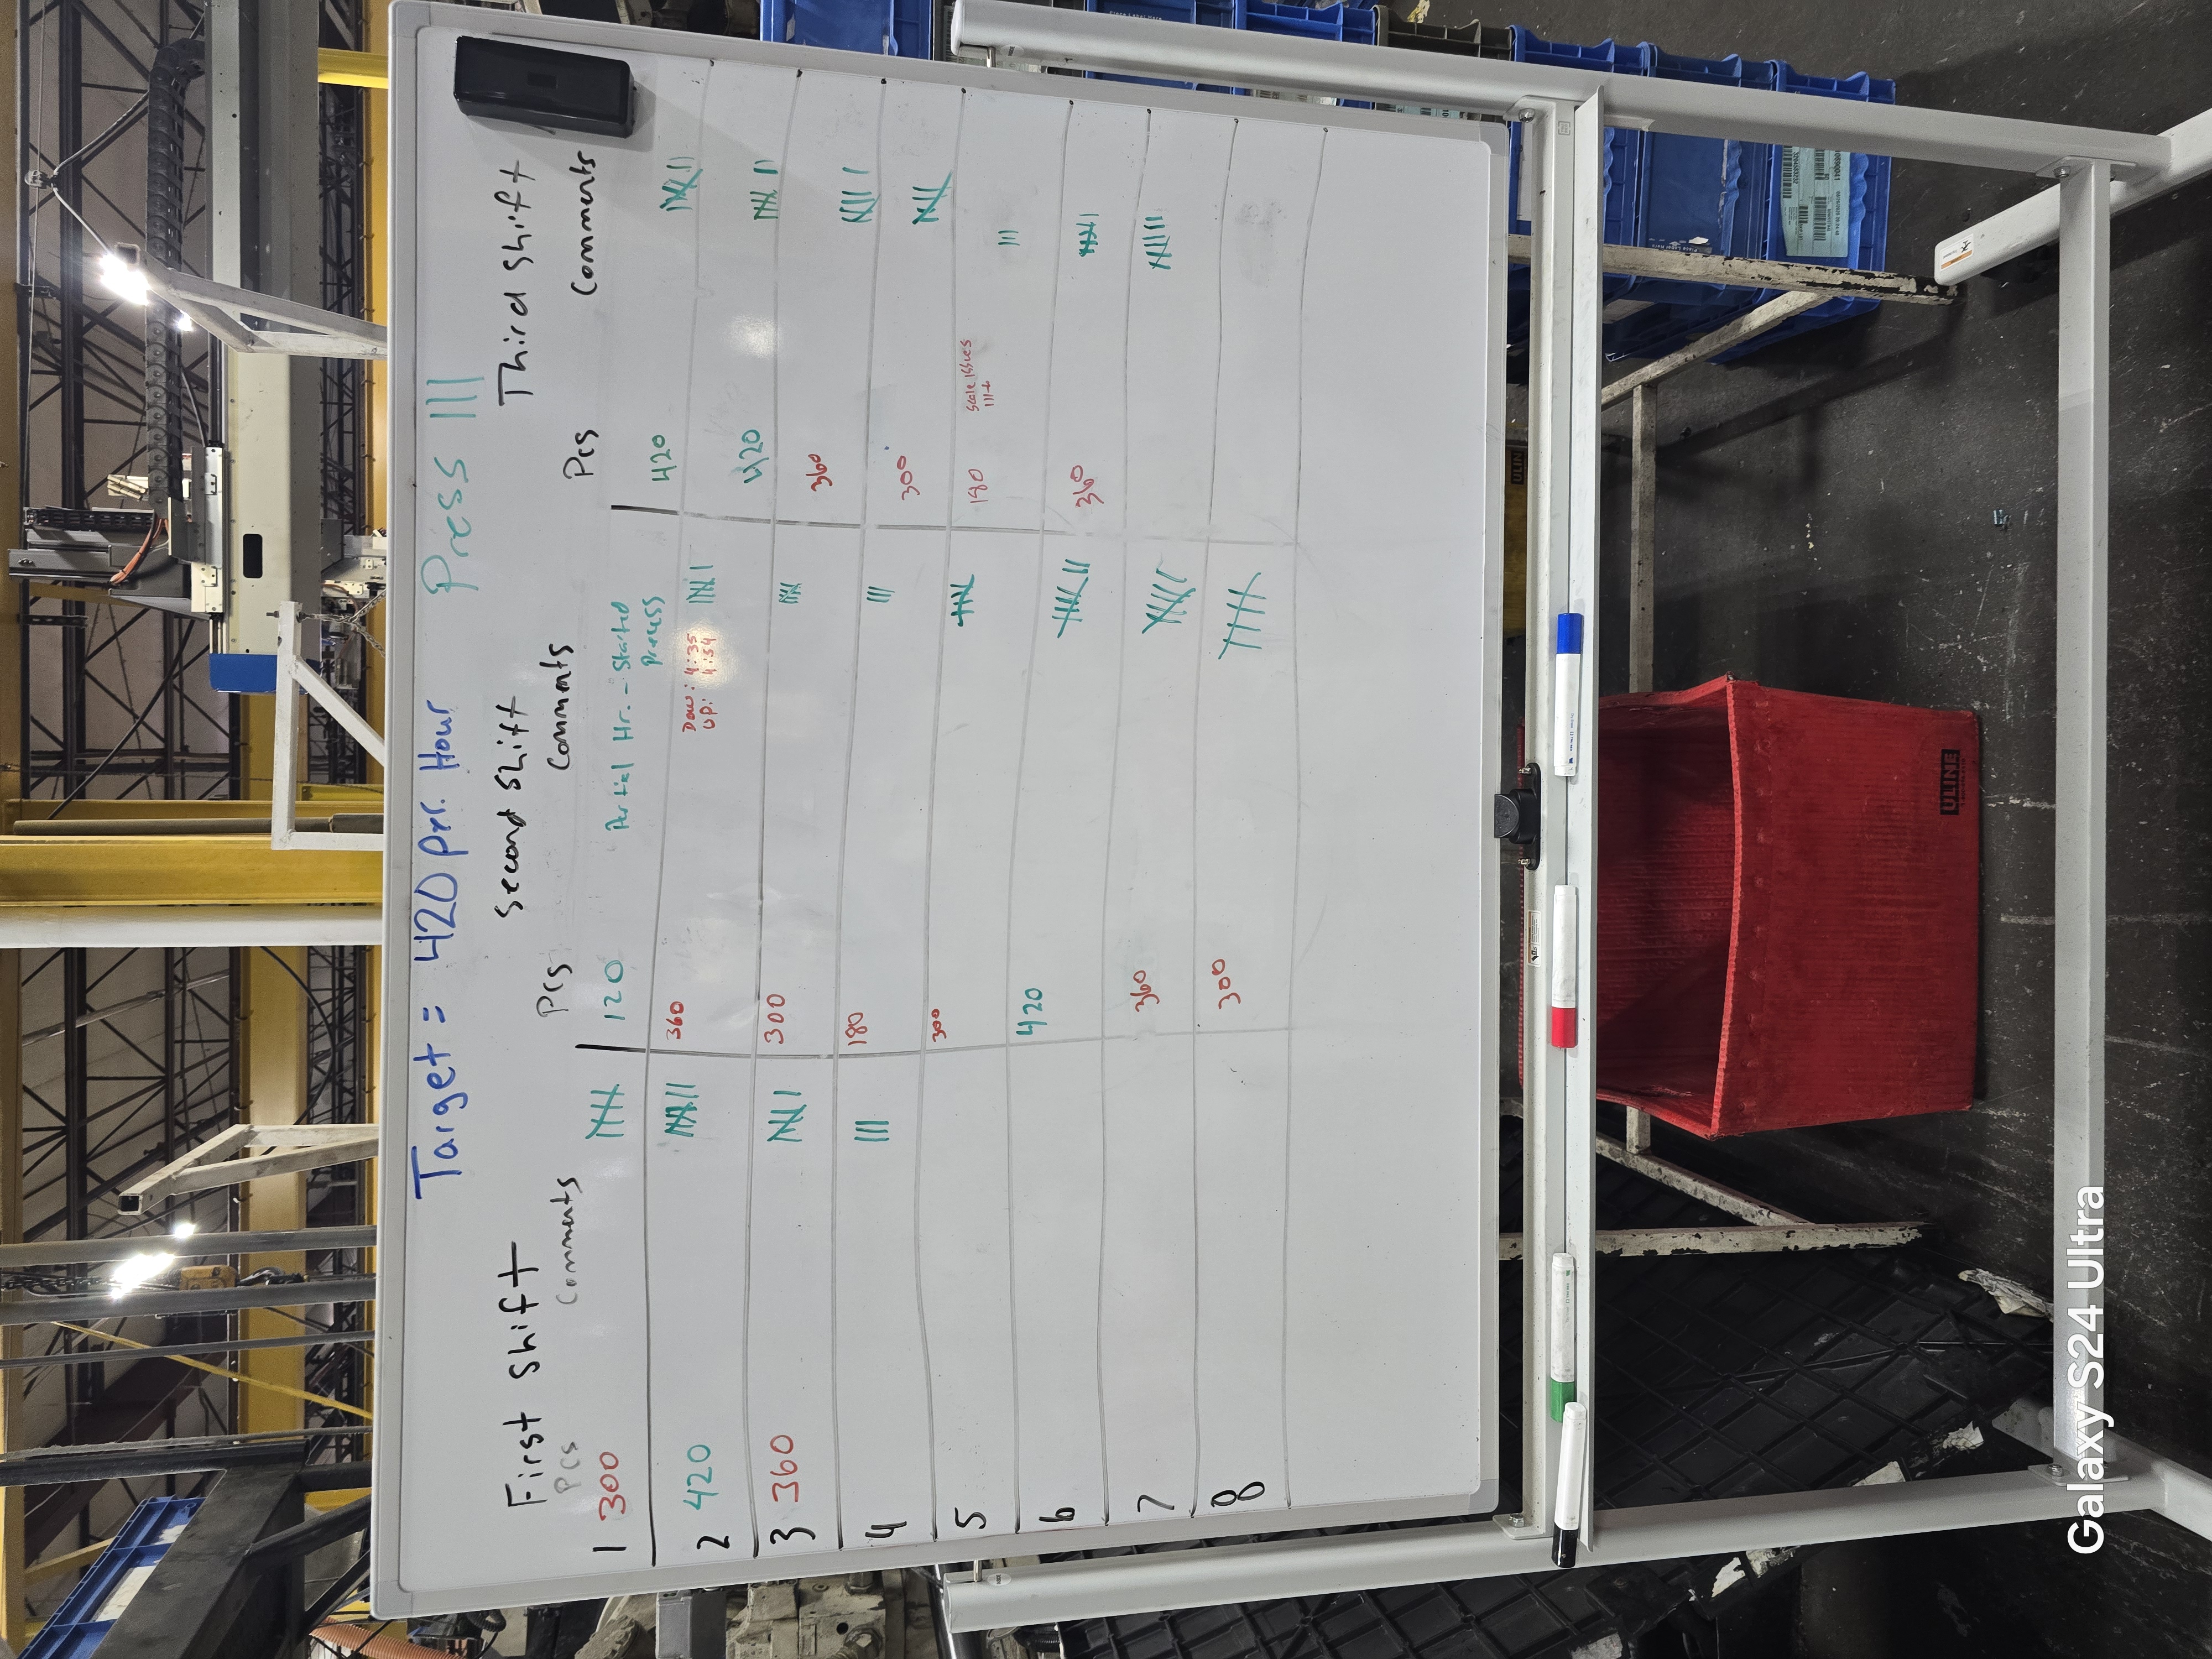 Target = 420 per. Hour Press 111
First Shift Second Shift Third Shift
Pcs Comments Pcs Comments Pcs Comments
1 300 120 Partial Hr. - Started process 420
2 420 360 Down: 4:35 420
UP: 4:54
3 360 300 360
4 180 300
5 300 180 Scale issues
6 420 360
7 360
8 300
ULINE
ULIN
Galaxy S24 Ultra